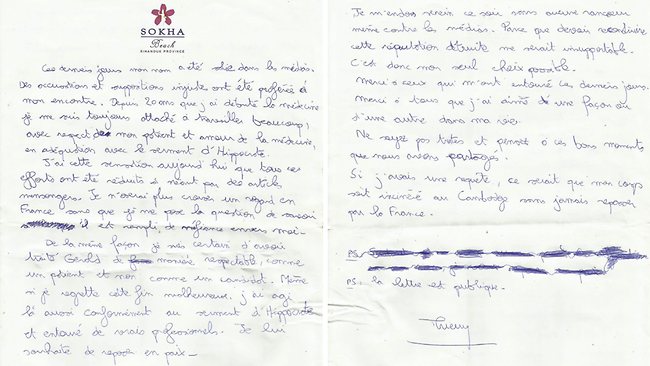 SOKHA
Beach
SIHANOUK PROVINCE
Ces derniers jours mon nom a été sali dans les médias.
Des accusations et suppositions injustes ont été proférées à
mon encontre. Depuis 20 ans que j'ai débuté la médecine
je me suis toujours attaché à travailler beaucoup,
avec respect de mon patient et amour de la médecine,
en adéquation avec le serment d'Hippocrate.
J'ai cette sensation aujourd'hui que tous ces
efforts ont été réduits à néant par des articles
mensongers. Je n'oserai plus croiser un regard en
France sans que je me pose la question de savoir
s'il est rempli de méfiance envers moi -
De la même façon je suis certain d'avoir
traité Gérald de manière respectable, comme
un patient et non comme un candidat. Même
si je regrette cette fin malheureuse, j'ai agi
là aussi conformément au serment d'Hippocrate
et entouré de vrais professionnels. Je lui
souhaite de reposer en paix -
Je m'endors serein ce soir sans aucune rancoeur
même contre les médias. Parce que devoir reconstruire
cette réputation détruite me serait insupportable.
C'est donc mon seul choix possible.
Merci à ceux qui m'ont entouré ces derniers jours.
Merci à tous que j'ai aimé d'une façon ou
d'une autre dans ma vie.
Ne soyez pas tristes et pensez à ces bons moments
que nous avons partagés.
Si j'avais une requête, ce serait que mon corps
soit incinéré au Cambodge sans jamais repasser
par la France.
PS:
PS: la lettre est publique.
Thierry